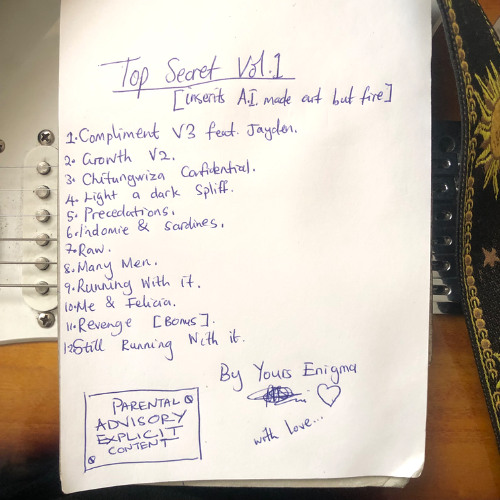 Top Secret Vol.1
[inserts A.I. made art but fire]
1. Compliment V3 feat. Jayden.
2. Growth V2.
3. Chitungwiza Confidential.
4. Light a dark Spliff.
5. Precedations.
6. Indomie & Sardines.
7. Raw.
8. Many Men.
9. Running With it.
10. Me & Felicia.
11. Revenge [Bonus].
12. Still Running With it.
By Yours Enigma
with love...
PARENTAL
ADVISORY
EXPLICIT
CONTENT